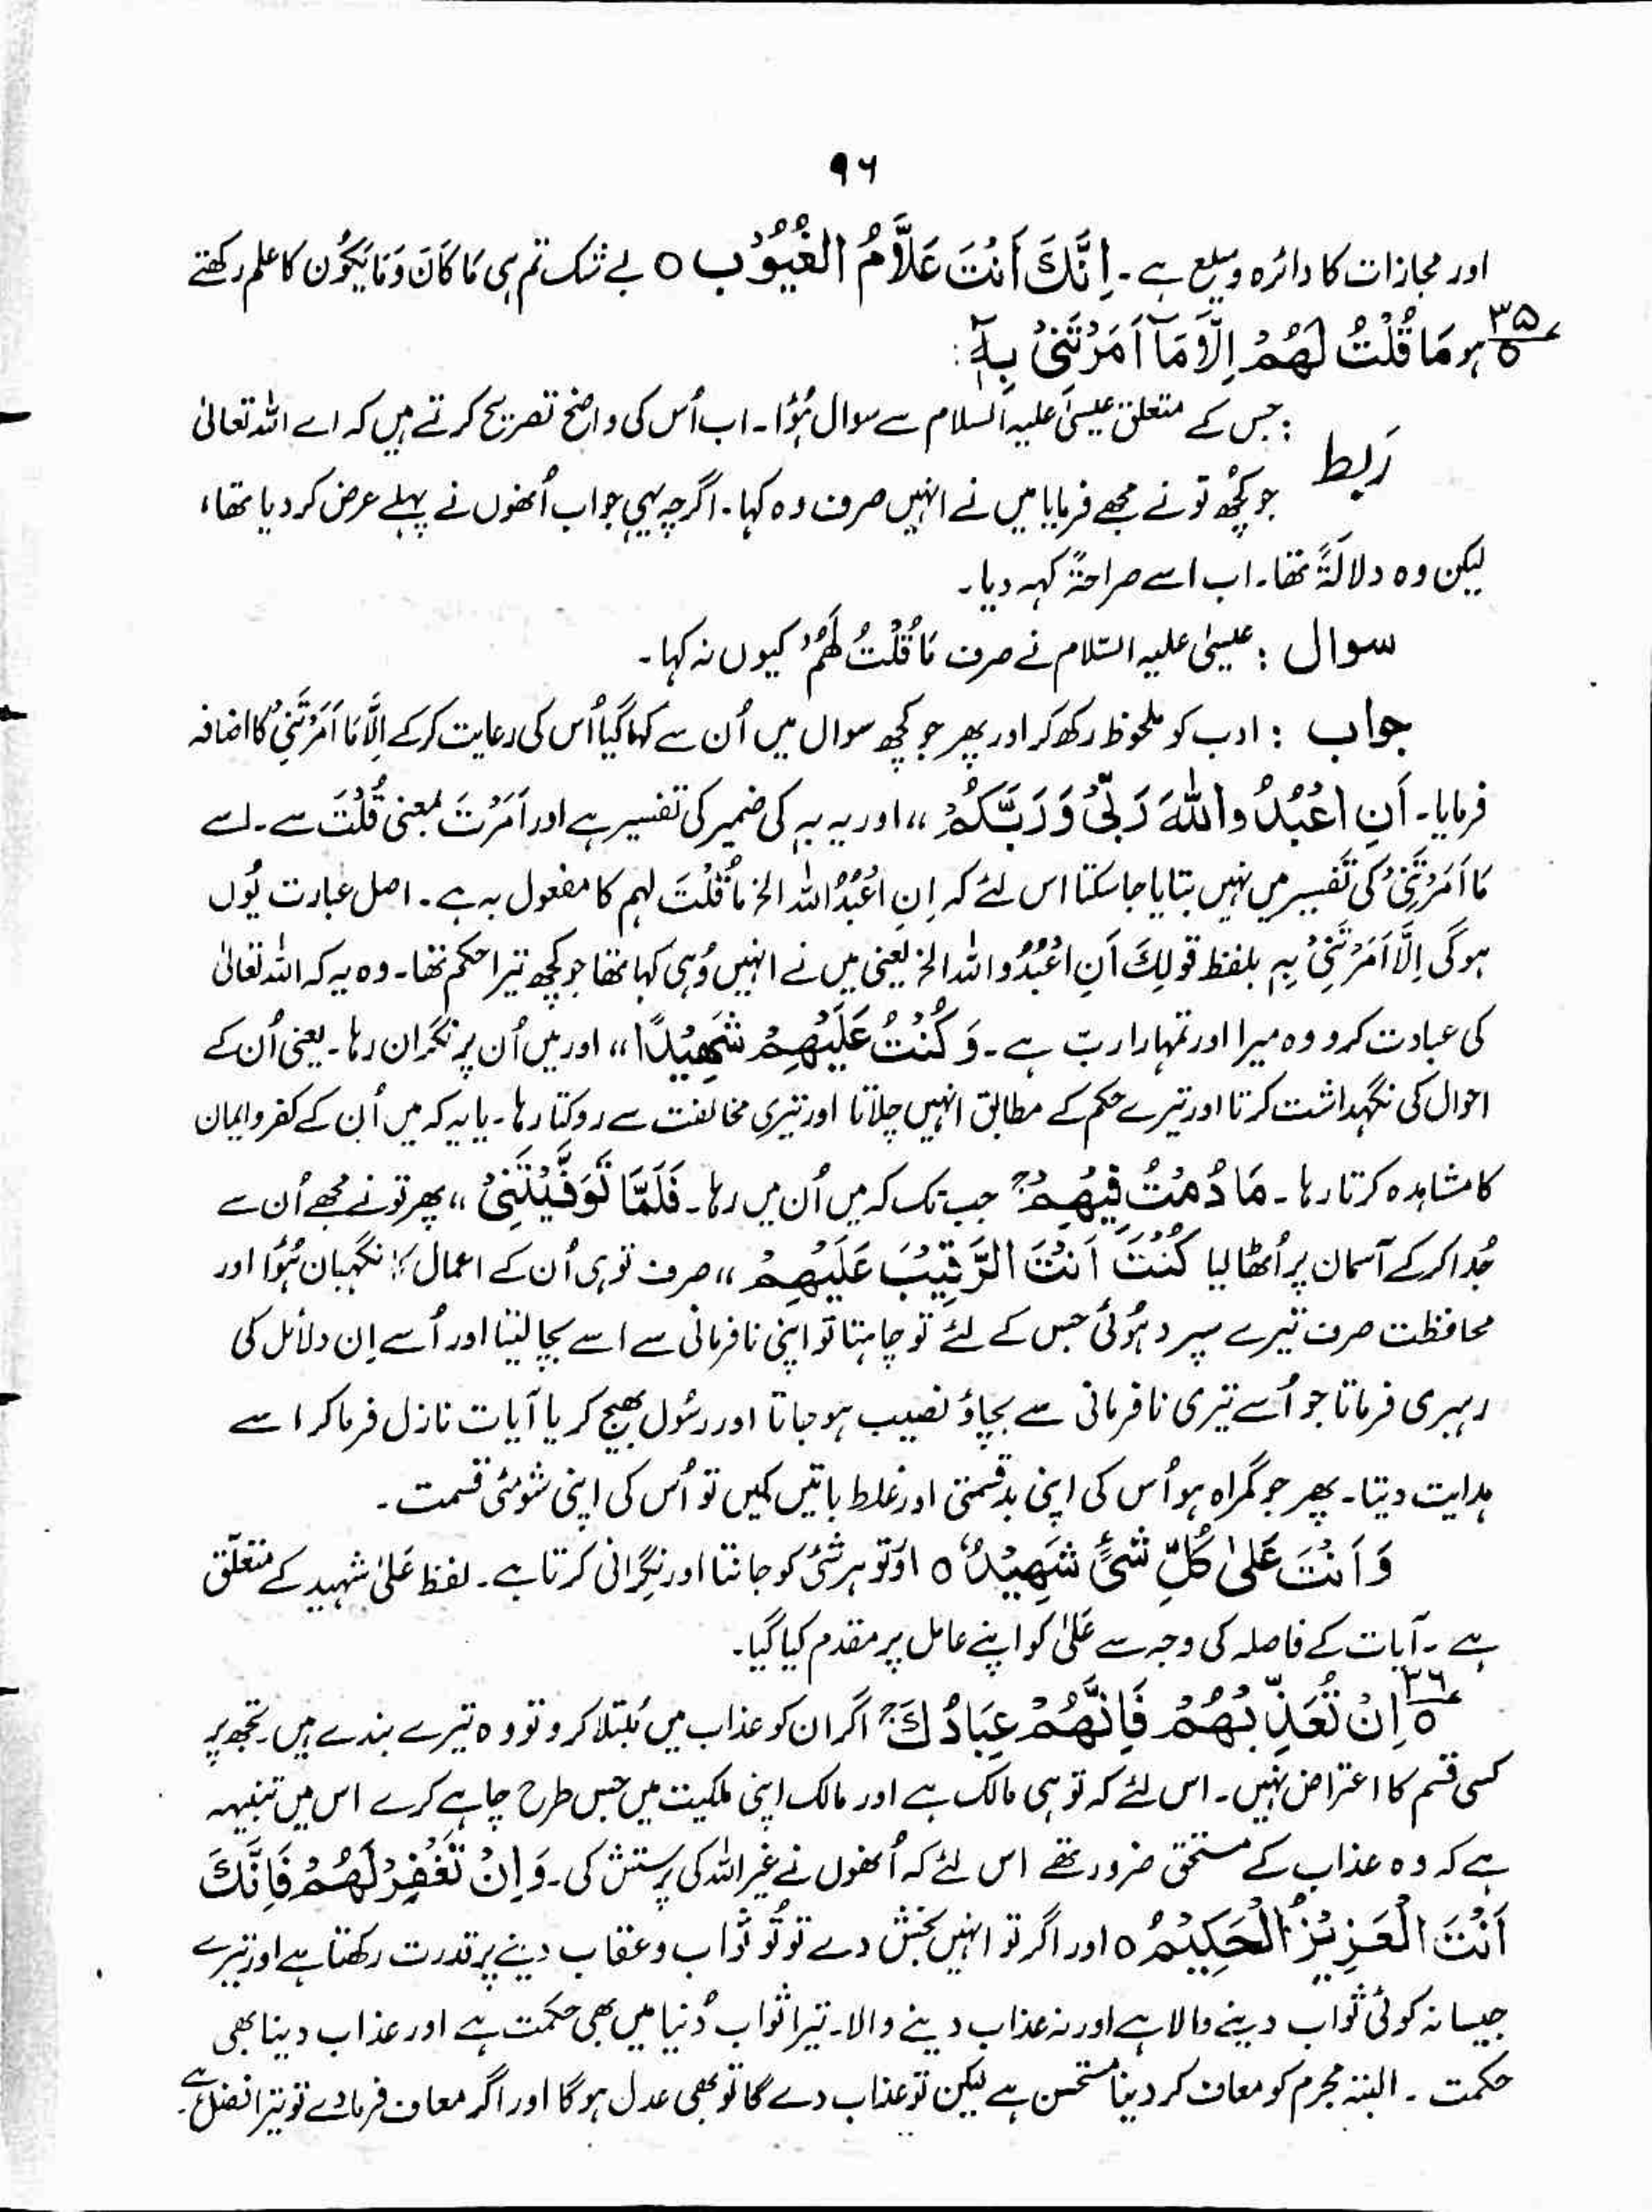 ۹۶
اور مجازات کا دائرہ وسیع ہے۔ اِنَّكَ أَنْتَ عَلَّامُ الْغُيُوْبِ ○ بے شک تم ہی مَا کَانَ وَمَا یَکُوْن کا علم رکھتے
۳۵ ہو مَا قُلْتُ لَهُمْ اِلَّا مَآ اَمَرْتَنِیْ بِهٖٓ :
ربط : جس کے متعلق عیسیٰ علیہ السلام سے سوال ہُوا۔ اب اُس کی واضح تصریح کرتے ہیں کہ اے اللہ تعالیٰ
جو کچھ تو نے مجھے فرمایا میں نے انہیں صرف وہ کہا۔ اگرچہ یہی جواب اُنھوں نے پہلے عرض کر دیا تھا،
لیکن وہ دلالَۃً تھا۔ اب اسے صراحۃً کہہ دیا۔
سوال : عیسیٰ علیہ السّلام نے صرف مَا قُلْتُ لَهُمْ کیوں نہ کہا۔
جواب : ادب کو ملحوظ رکھ کر اور پھر جو کچھ سوال میں اُن سے کہا گیا اُس کی رعایت کر کے اِلَّا مَا اَمَرْتَنِیْ کا اضافہ
فرمایا۔ اَنِ اعْبُدُوا اللهَ رَبِّیْ وَ رَبَّكُمْ ،، اور یہ بِہٖ کی ضمیر کی تفسیر ہے اور اَمَرْتَ بمعنی قُلْتَ ہے۔ اسے
مَا اَمَرْتَنِیْ کی تفسیر میں نہیں بتایا جا سکتا اس لئے کہ اِنِ اعْبُدُوا اللہ الخ مَا قُلْتَ لہم کا مفعول بہ ہے۔ اصل عبارت یُوں
ہوگی اِلَّا اَمَرْتَنِیْ بِہٖ بلفظ قولِكَ اَنِ اعْبُدُوا اللہ الخ یعنی میں نے انہیں وُہی کہا تھا جو کچھ تیرا حکم تھا۔ وہ یہ کہ اللہ تعالیٰ
کی عبادت کرو وہ میرا اور تمہارا ربّ ہے۔ وَ كُنْتُ عَلَيْهِمْ شَهِيْدًا ،، اور میں اُن پر نگران رہا۔ یعنی اُن کے
احوال کی نگہداشت کرتا اور تیرے حکم کے مطابق انہیں چلاتا اور تیری مخالفت سے روکتا رہا۔ یا یہ کہ میں اُن کے کفر و ایمان
کا مشاہدہ کرتا رہا۔ مَا دُمْتُ فِيْهِمْ ج جب تک کہ میں اُن میں رہا۔ فَلَمَّا تَوَفَّيْتَنِیْ ،، پھر تو نے مجھے اُن سے
جُدا کر کے آسمان پر اُٹھا لیا كُنْتَ اَنْتَ الرَّقِيْبَ عَلَيْهِمْ ،، صرف تو ہی اُن کے اعمال کا نگہبان ہُوا اور
محافظت صرف تیرے سپرد ہُوئی جس کے لئے تو چاہتا تو اپنی نافرمانی سے اسے بچا لیتا اور اُسے اِن دلائل کی
رہبری فرماتا جو اُسے تیری نافرمانی سے بچاؤ نصیب ہو جاتا اور رسُول بھیج کر یا آیات نازل فرما کر اسے
ہدایت دیتا۔ پھر جو گمراہ ہو اُس کی اپنی بدقسمتی اور غلط باتیں کہیں تو اُس کی اپنی شومئی قسمت۔
وَ اَنْتَ عَلٰی كُلِّ شَیْءٍ شَهِيْدٌ ○ اور تو ہر شئ کو جانتا اور نگرانی کرتا ہے۔ لفظ عَلیٰ شہید کے متعلّق
ہے۔ آیات کے فاصلہ کی وجہ سے عَلیٰ کو اپنے عامل پر مقدم کیا گیا۔
۳۶ اِنْ تُعَذِّبْهُمْ فَاِنَّهُمْ عِبَادُكَ ج اگر ان کو عذاب میں مُبتلا کرو تو وہ تیرے بندے ہیں۔ تجھ پر
کسی قسم کا اعتراض نہیں۔ اس لئے کہ تو ہی مالک ہے اور مالک اپنی ملکیت میں جس طرح چاہے کرے اس میں تنبیہہ
ہے کہ وہ عذاب کے مستحق ضرور تھے اس لئے کہ اُنھوں نے غیر اللہ کی پرستش کی۔ وَ اِنْ تَغْفِرْ لَهُمْ فَاِنَّكَ
اَنْتَ الْعَزِيْزُ الْحَكِيْمُ ○ اور اگر تو انہیں بخش دے تو تُو ثواب و عقاب دینے پر قدرت رکھتا ہے اور تیرے
جیسا نہ کوئی ثواب دینے والا ہے اور نہ عذاب دینے والا۔ تیرا ثواب دُنیا میں بھی حکمت ہے اور عذاب دینا بھی
حکمت۔ البتہ مجرم کو معاف کر دینا مستحسن ہے لیکن تو عذاب دے گا تو بھی عدل ہوگا اور اگر معاف فرما دے تو تیرا فضل ہے۔